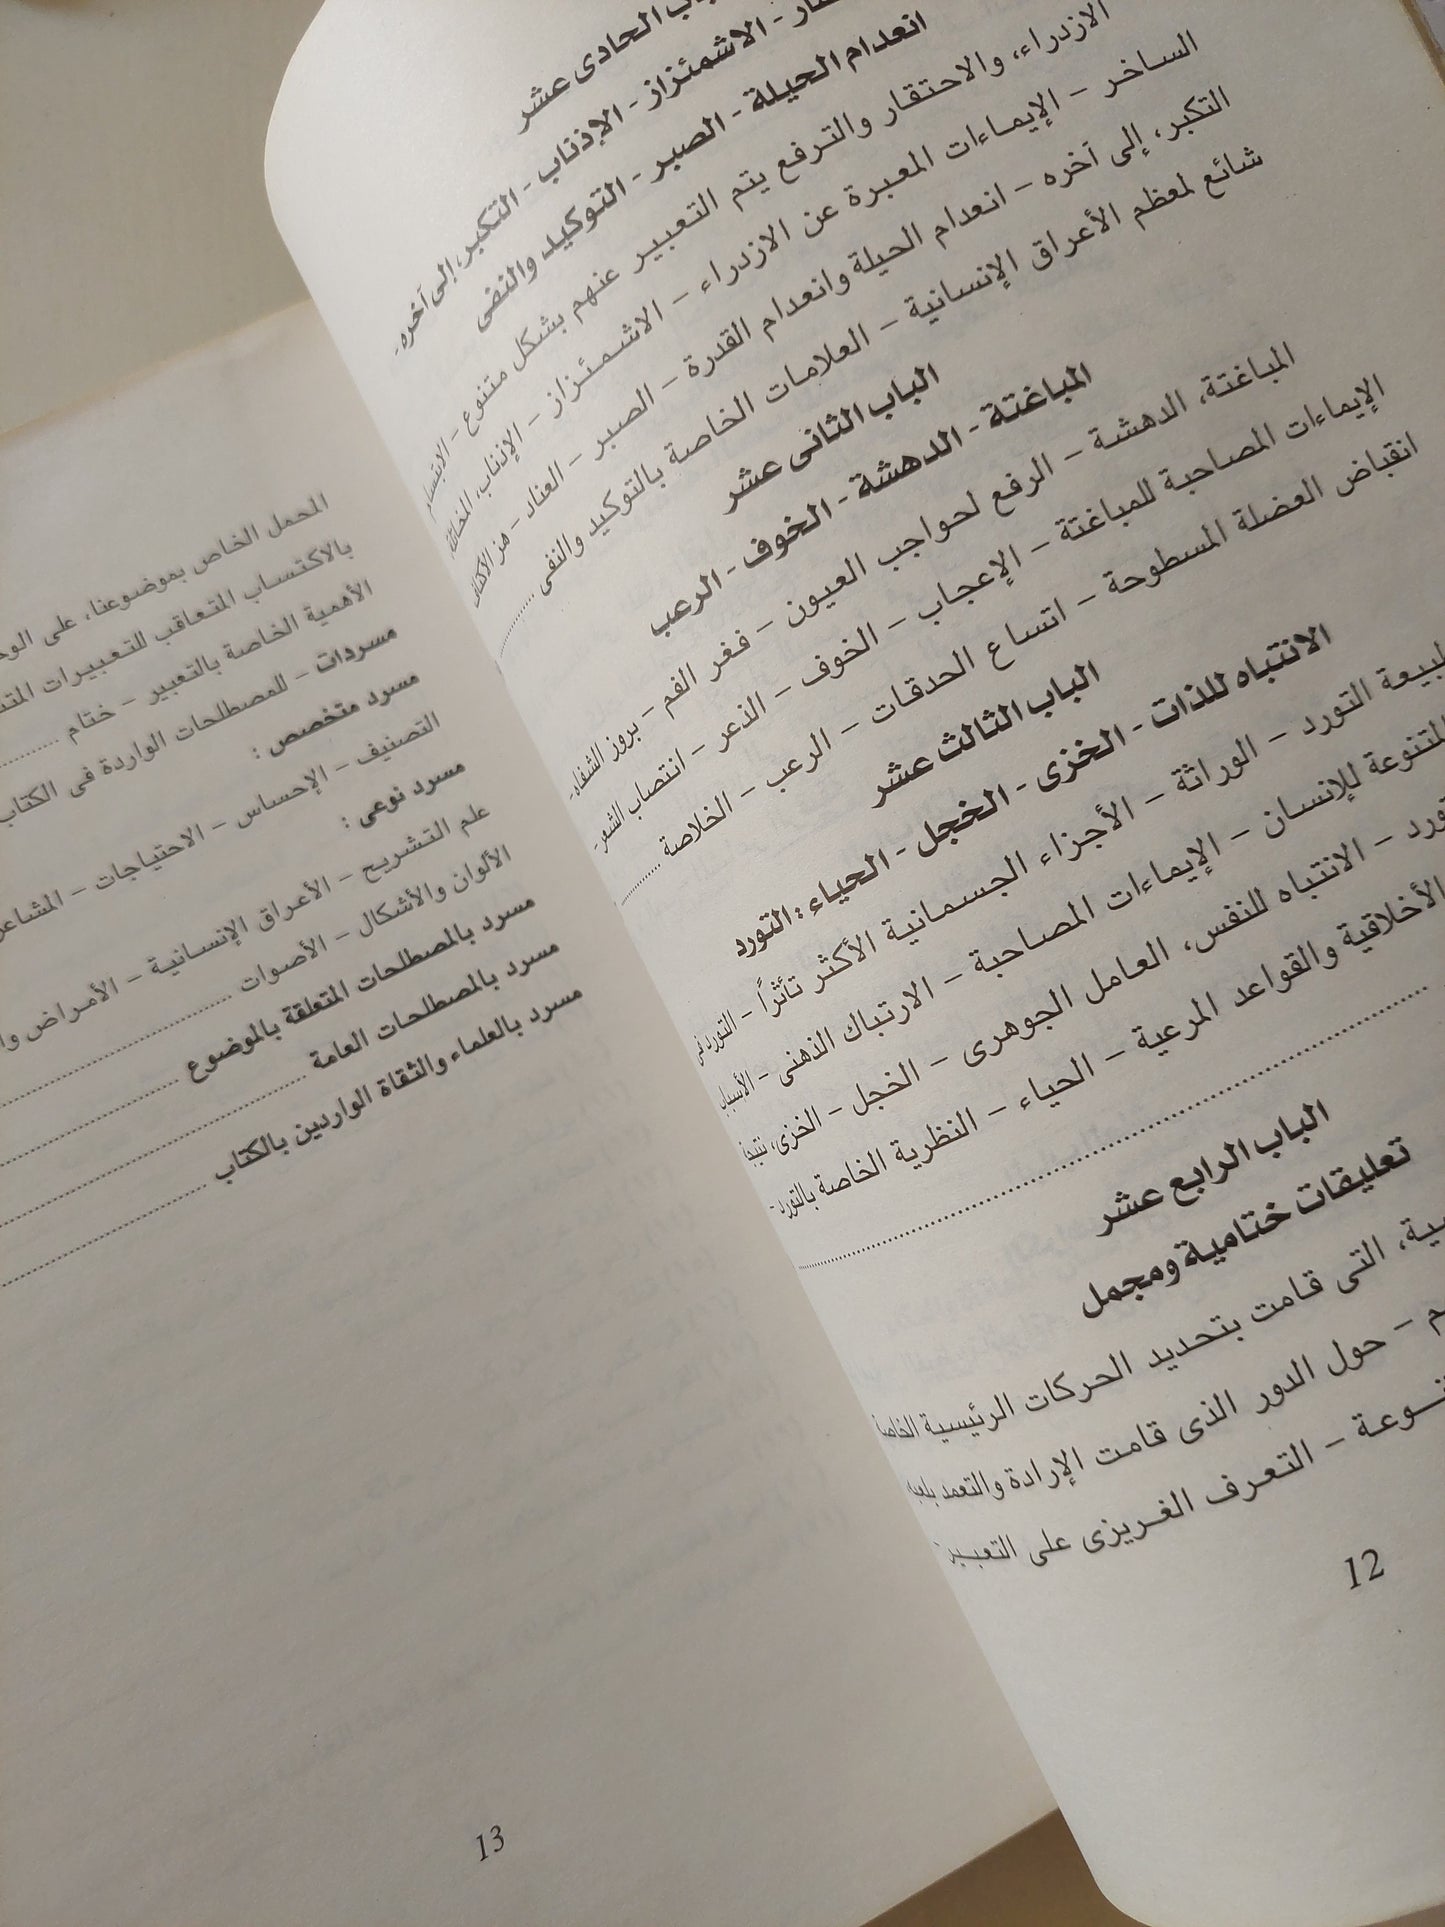 الحادى عشر
الاشمئزاز - الإذناب - التكبر، إلى آخره -
انعدام الحيلة - الصبر - التوكيد والنفى
الازدراء، والاحتقار والترفع يتم التعبير عنهم بشكل متنوع - الابتسار
الساخر - الإيماءات المعبرة عن الازدراء - الاشمئزاز - الإذناب، المخاتلة
التكبر، إلى آخره - انعدام الحيلة وانعدام القدرة - الصبر - العناد - هز الأكتاف
شائع لمعظم الأعراق الإنسانية - العلامات الخاصة بالتوكيد والنفى ..........
الباب الثانى عشر
المباغتة - الدهشة - الخوف - الرعب
المباغتة، الدهشة - الرفع لحواجب العيون - فغر الفم - بروز الشفاه -
الإيماءات المصاحبة للمباغتة - الإعجاب - الخوف - الذعر - انتصاب الشعر -
انقباض العضلة المسطوحة - اتساع الحدقات - الرعب - الخلاصة ..........
الباب الثالث عشر
الانتباه للذات - الخزى - الخجل - الحياء : التورد
التورد - الوراثة - الأجزاء الجسمانية الأكثر تأثراً - التورد فى
للإنسان - الإيماءات المصاحبة - الارتباك الذهنى - الأسباب
- الانتباه للنفس، العامل الجوهرى - الخجل - الخزى، نتيجة
الأخلاقية والقواعد المرعية - الحياء - النظرية الخاصة بالتورد -
..........
الباب الرابع عشر
تعليقات ختامية ومجمل
التى قامت بتحديد الحركات الرئيسية الخاصة
- حول الدور الذى قامت الإرادة والتعمد بلعبه
- التعرف الغريزى على التعبير -
12
المجمل الخاص بموضوعنا، على
بالاكتساب المتعاقب للتعبيرات
الأهمية الخاصة بالتعبير - ختام ..........
مسردات - للمصطلحات الواردة فى الكتاب
مسرد متخصص :
التصنيف - الإحساس - الاحتياجات - المشاعر
مسرد نوعى :
علم التشريح - الأعراق الإنسانية - الأمراض
الألوان والأشكال - الأصوات ..........
مسرد بالمصطلحات المتعلقة بالموضوع ..........
مسرد بالمصطلحات العامة ..........
مسرد بالعلماء والثقاة الواردين بالكتاب ..........
13